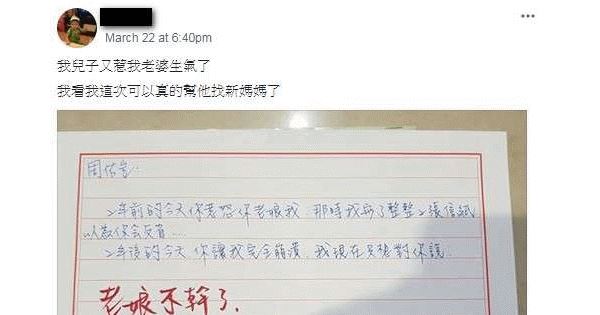 March 22 at 6:40pm
我兒子又惹我老婆生氣了
我看我這次可以真的幫他找新媽媽了
周佑
2年前的今天你惹怒你老娘我,那時我寫了整整2張信紙
以為你會反省...
2年後的今天 你讓我完全崩潰,我現在只想對你說:
老娘不幹了.